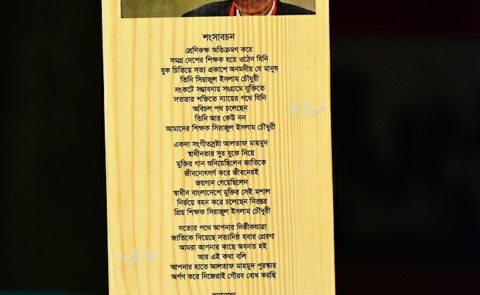 শংসাবচন
শ্রেণিকক্ষ অতিক্রমণ করে
সমগ্র দেশের শিক্ষক হয়ে ওঠেন যিনি
বুক চিতিয়ে সত্য প্রকাশে অনমনীয় যে মানুষ
তিনি সিরাজুল ইসলাম চৌধুরী
সংকটে সম্ভাবনায় সংগ্রামে যুক্তিতে
সততার শক্তিতে ন্যায়ের পথে যিনি
অবিচল পথ চলেছেন
তিনি আর কেউ নন
আমাদের শিক্ষক সিরাজুল ইসলাম চৌধুরী
একদা সংগীতস্রষ্টা আলতাফ মাহমুদ
স্বাধীনতার সুর বুকে নিয়ে
মুক্তির গান শুনিয়েছিলেন জাতিকে
জীবনোৎসর্গ করে জীবনেরই
জয়গান গেয়েছিলেন
স্বাধীন বাংলাদেশে মুক্তির সেই মশাল
নির্ভয়ে বহন করে চলেছেন নিরন্তর
প্রিয় শিক্ষক সিরাজুল ইসলাম চৌধুরী
সত্যের পথে আপনার নির্ভীকযাত্রা
জাতিকে দিয়েছে সত্যনিষ্ঠ হবার প্রেরণা
আমরা আপনার কাছে অবনত হই
আর এই কথা বলি
আপনার হাতে আলতাফ মাহমুদ পুরস্কার
অর্পণ করে নিজেরাই গৌরব বোধ করছি